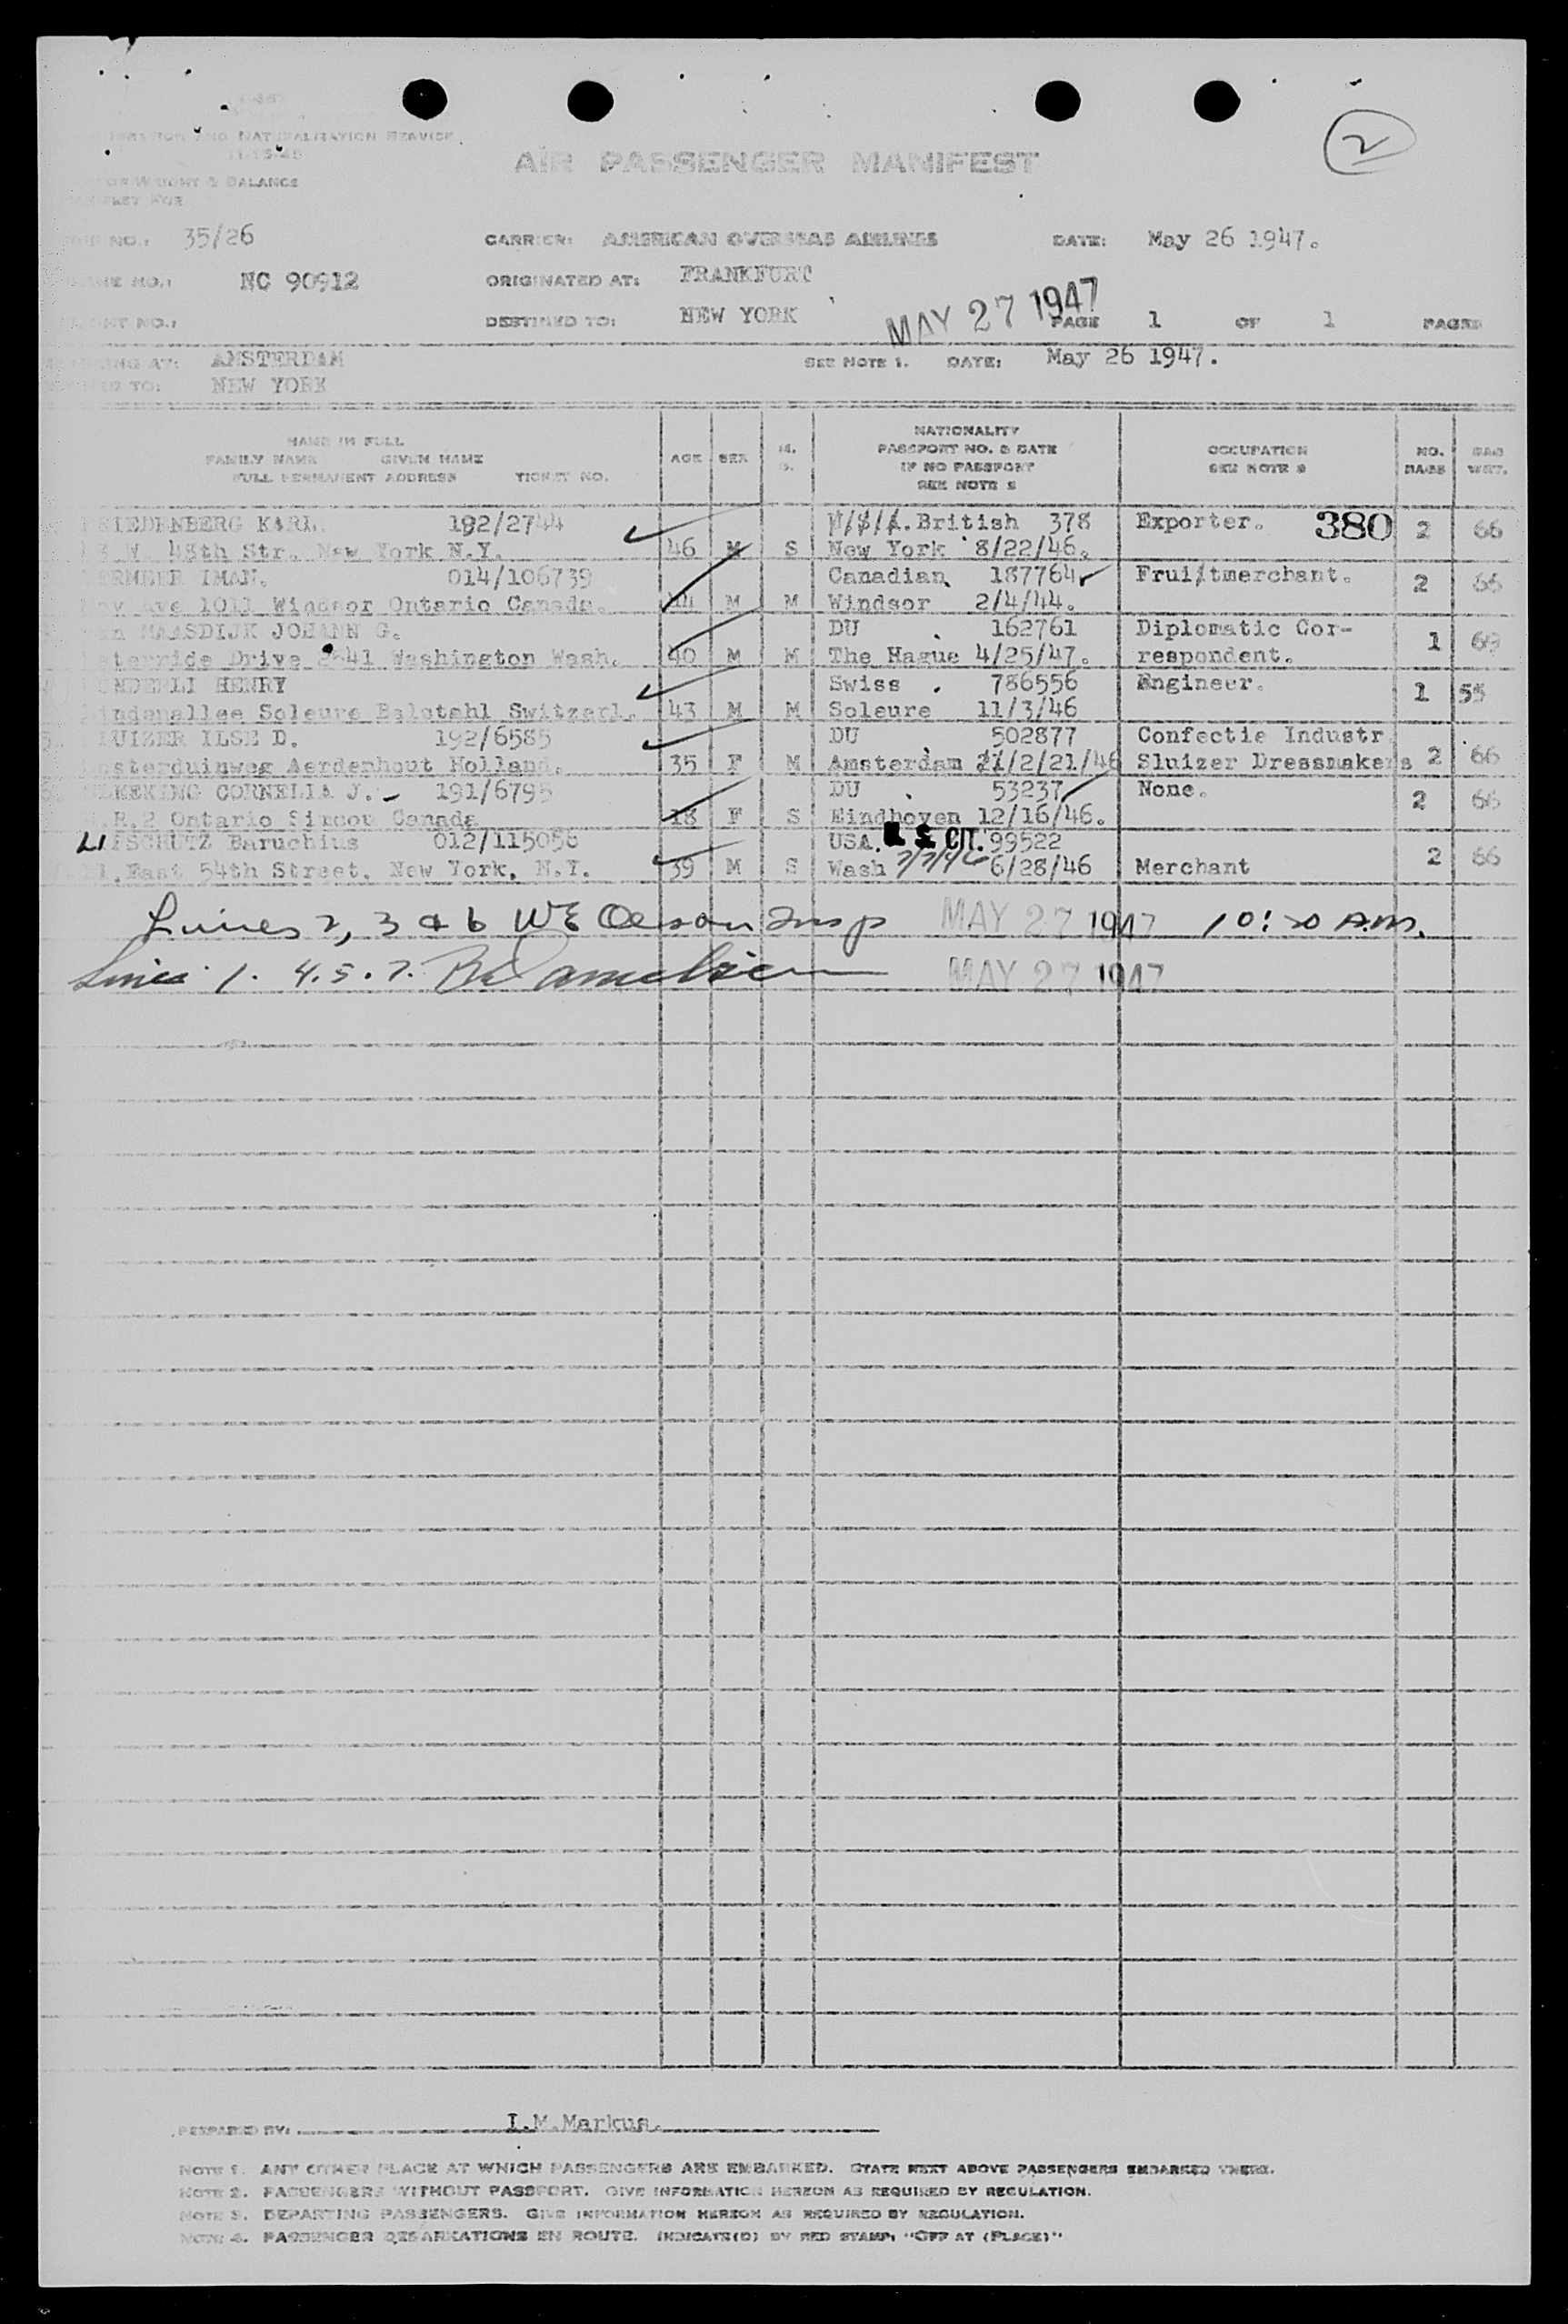 2
NATURALIZATION SERVICE
11-15-45
AIR PASSENGER MANIFEST
WEIGHT & BALANCE
FOR
NO.: 35/26 CARRIER: AMERICAN OVERSEAS AIRLINES DATE: May 26 1947.
NO.: NC 90912 ORIGINATED AT: FRANKFURT
NO.: DESTINED TO: NEW YORK MAY 27 1947 PAGE 1 OF 1 PAGES
AT: AMSTERDAM SEE NOTE 1. DATE: May 26 1947.
TO: NEW YORK
NAME IN FULL
FAMILY NAME GIVEN NAME
FULL PERMANENT ADDRESS TICKET NO.
AGE SEX M. S.
NATIONALITY
PASSPORT NO. & DATE
IF NO PASSPORT
SEE NOTE 2
OCCUPATION
SEE NOTE 3
NO. BAGS
BAG WGT.
FRIEDENBERG KARL. 192/2744 British 378 Exporter. 380 2 66
W. 48th Str. New York N.Y. 46 M S New York 8/22/46.
IMAN. 014/106739 Canadian 187764 Frui/tmerchant. 2 66
Ave 1011 Windsor Ontario Canada. 44 M M Windsor 2/4/44.
MAASDIJK JOHANN G. DU 162761 Diplomatic Cor- 1 69
Drive 2641 Washington Wash. 40 M M The Hague 4/25/47. respondent.
HENRY Swiss 786556 Engineer. 1 55
Soleure Balstahl Switzerl. 43 M M Soleure 11/3/46
ILSE D. 192/6585 DU 502877 Confectie Industr
Aerdenhout Holland. 35 F M Amsterdam 2/21/46 Sluizer Dressmakers 2 66
CORNELIA J. 191/6795 DU 53237 None. 2 66
R.2 Ontario Simcoe Canada 18 F S Eindhoven 12/16/46.
LIFSCHUTZ Baruchius 012/115056 USA. U S CIT. 99522
East 54th Street, New York, N.Y. 39 M S Wash 7/7/46 6/28/46 Merchant 2 66
Lines 2, 3 & 6 WE Oeson Insp MAY 27 1947 10:20 A.M.
Lines 1. 4.5.7. MAY 27 1947
PREPARED BY: I.M.Markus.
NOTE 1. ANY OTHER PLACE AT WHICH PASSENGERS ARE EMBARKED. STATE NEXT ABOVE PASSENGERS EMBARKED THERE.
NOTE 2. PASSENGERS WITHOUT PASSPORT. GIVE INFORMATION HEREON AS REQUIRED BY REGULATION.
NOTE 3. DEPARTING PASSENGERS. GIVE INFORMATION HEREON AS REQUIRED BY REGULATION.
NOTE 4. PASSENGER DEBARKATIONS EN ROUTE. INDICATE(D) BY RED STAMP, "OFF AT (PLACE)"